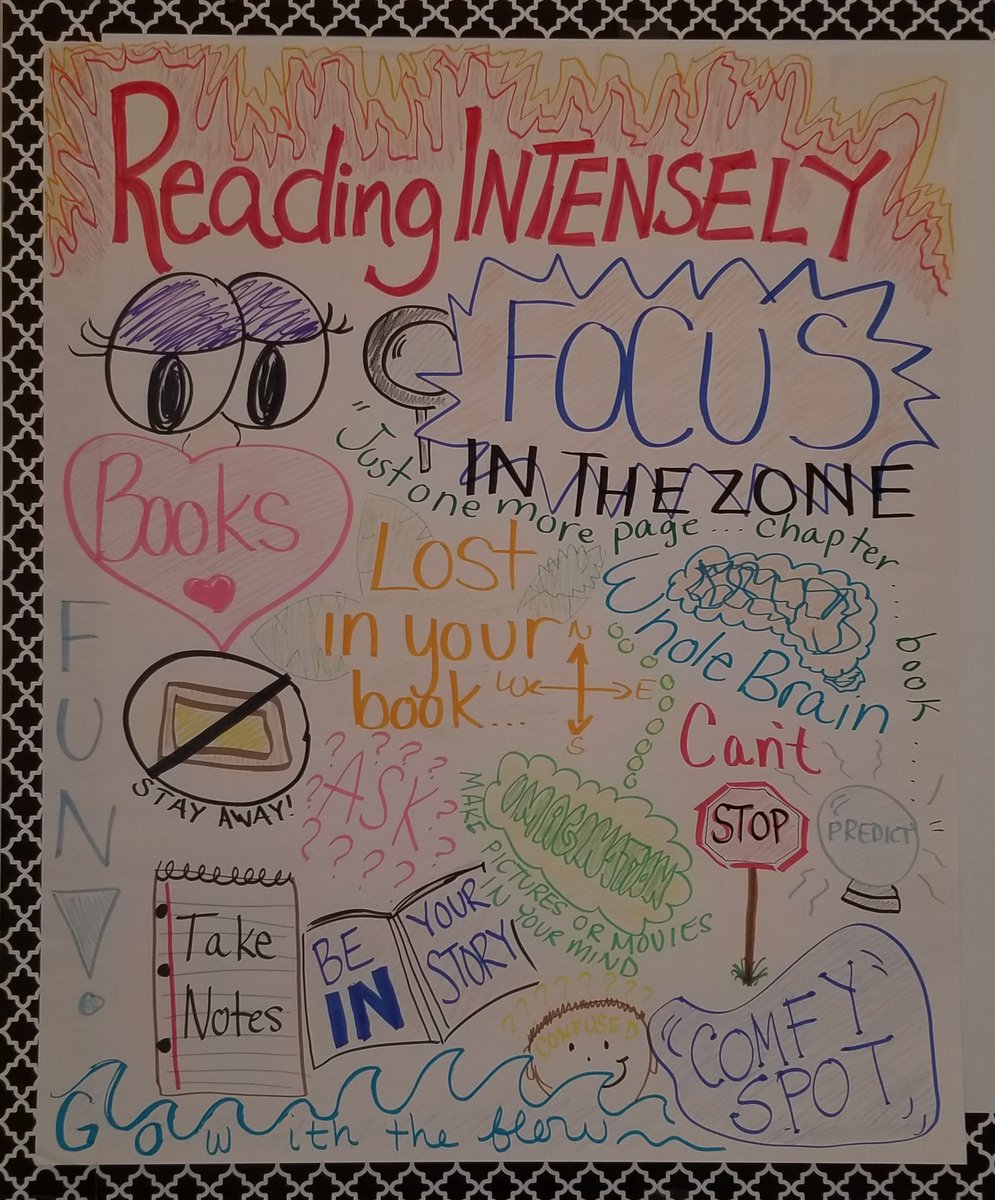 Reading INTENSELY
FOCUS
IN THE ZONE
"Just one more page.... chapter.... book.....
Books
Lost
in your
book...
N
W E
S
Whole Brain
FUN!
STAY AWAY!
ASK
? ? ? ? ? ? ? ? ? ? ? ?
IMAGINATION
MAKE PICTURES OR MOVIES
IN YOUR MIND
Can't
STOP
PREDICT
Take
Notes
BE
IN
YOUR
STORY
? ? ? ? ? ? ? ?
CONFUSED
COMFY
SPOT
Go with the flow